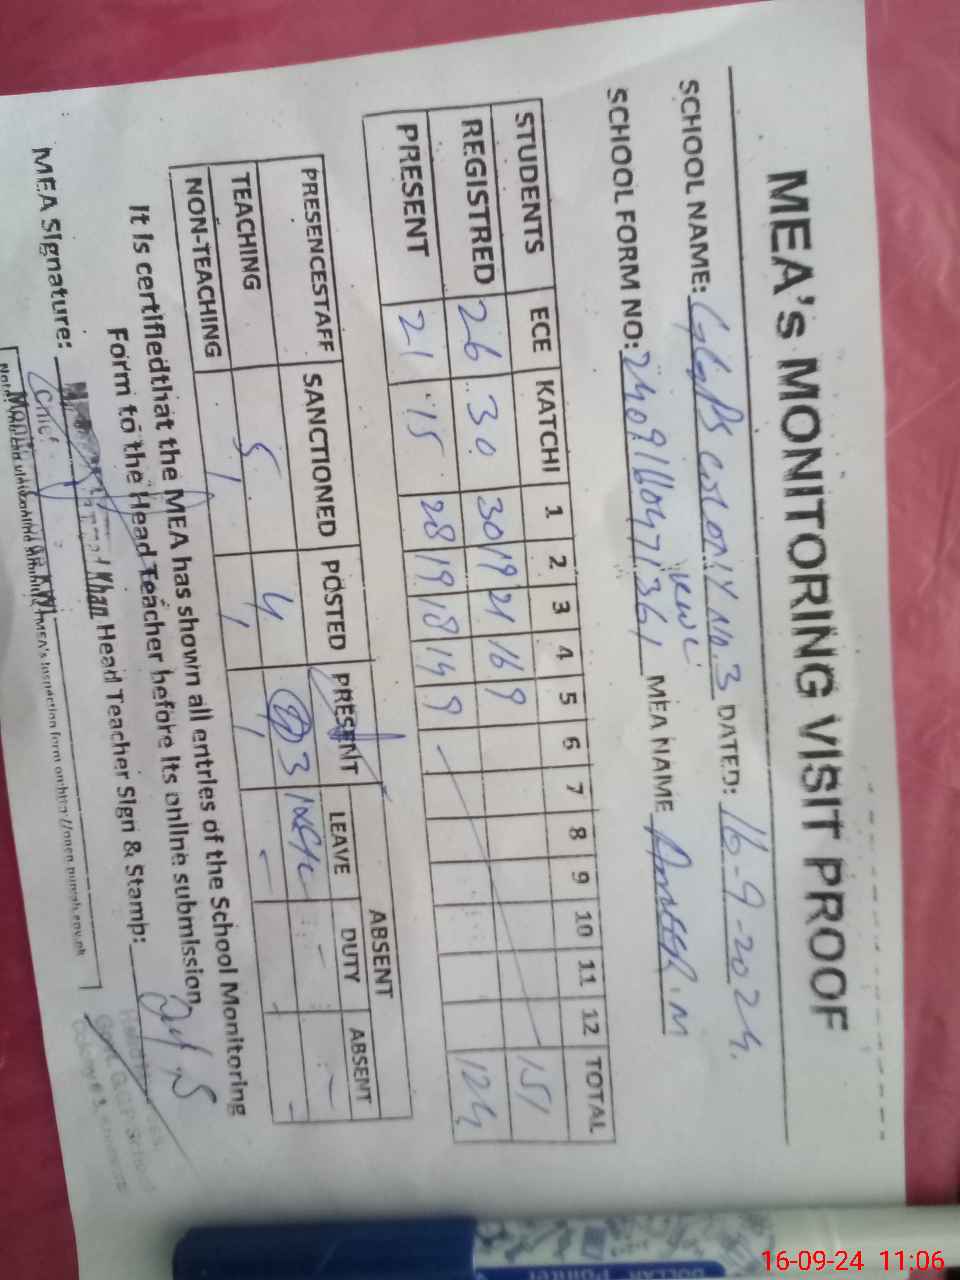 MEA's MONITORING VISIT PROOF
SCHOOL NAME: GGPS COLONY NO 3 DATED: 16-9-2024.
KWL
SCHOOL FORM NO: MEA NAME Ameer.M
STUDENTS ECE KATCHI 1 2 3 4 5 6 7 8 9 10 11 12 TOTAL
REGISTRED 26 30 30 19 21 16 9 151
PRESENT 21 15 28 19 18 14 9 124
PRESENCESTAFF SANCTIONED POSTED PRESENT ABSENT
LEAVE DUTY ABSENT
TEACHING 5 4 3 -
NON-TEACHING 1 1 1 - -
It is certifiedthat the MEA has shown all entries of the School Monitoring
Form to the Head Teacher before its online submission
MEA Signature: Khan Head Teacher Sign & Stamp:
16-09-24 11:06